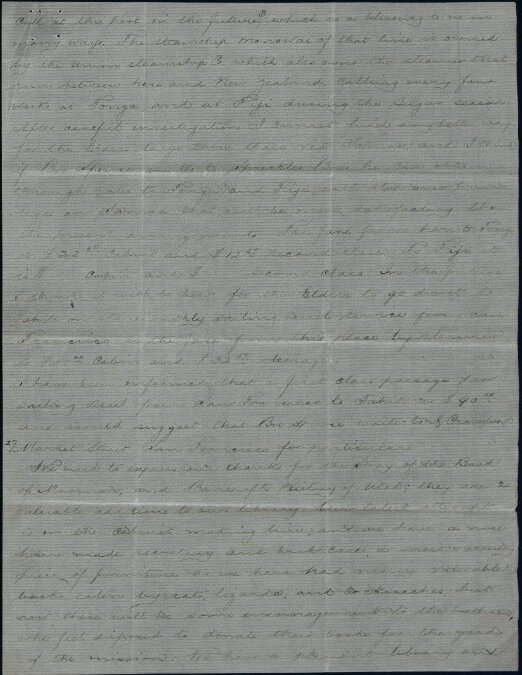 call at this port in the future? which is a blessing to us in
many ways. The steamship Monowai of that line is owned
by the Union Steamship Co which also owns the steamer that
runs between here and New Zealand, calling every four
weeks at Tonga and at Fiji during the Sugar season.
After careful investigation I cannot find any better way
for the Elders to go there than via Samoa, and I think
if Bro Spence writes to Spreckles Bros he can obtain
through rates to Tonga and Fiji, with stop over
on Samoa that will be more satisfactory than
the present arrangements. The fare from here to Tonga
is $ Cabin and $ second class, to Fiji it
is $ Cabin and $ second class. In the future
I think it will be best for the Elders to go direct to
Tahiti on the monthly sailing vessel service from San
Francisco as the fare from this place by steamer
is Cabin and $ steerage.
I have been informed that a first class passage per
sailing vessel from San Francisco to Tahiti is $
and would suggest that Bro Spence write to Crawford
27 Market Street San Francisco for particulars.
We wish to express our thanks for the story of the Book
of Mormon, and Bancroft's History of Utah; they are 2
valuable additions to our library.
is in the cabinet making line, and we have a nice
home made secretary and book case, a most
piece of furniture as we have had many valuable
books eaten by rats, lizards, and Cockroaches, but
now there will be some encouragement to the brethren
who feel disposed to donate their books for the good
of the mission. We have a library and